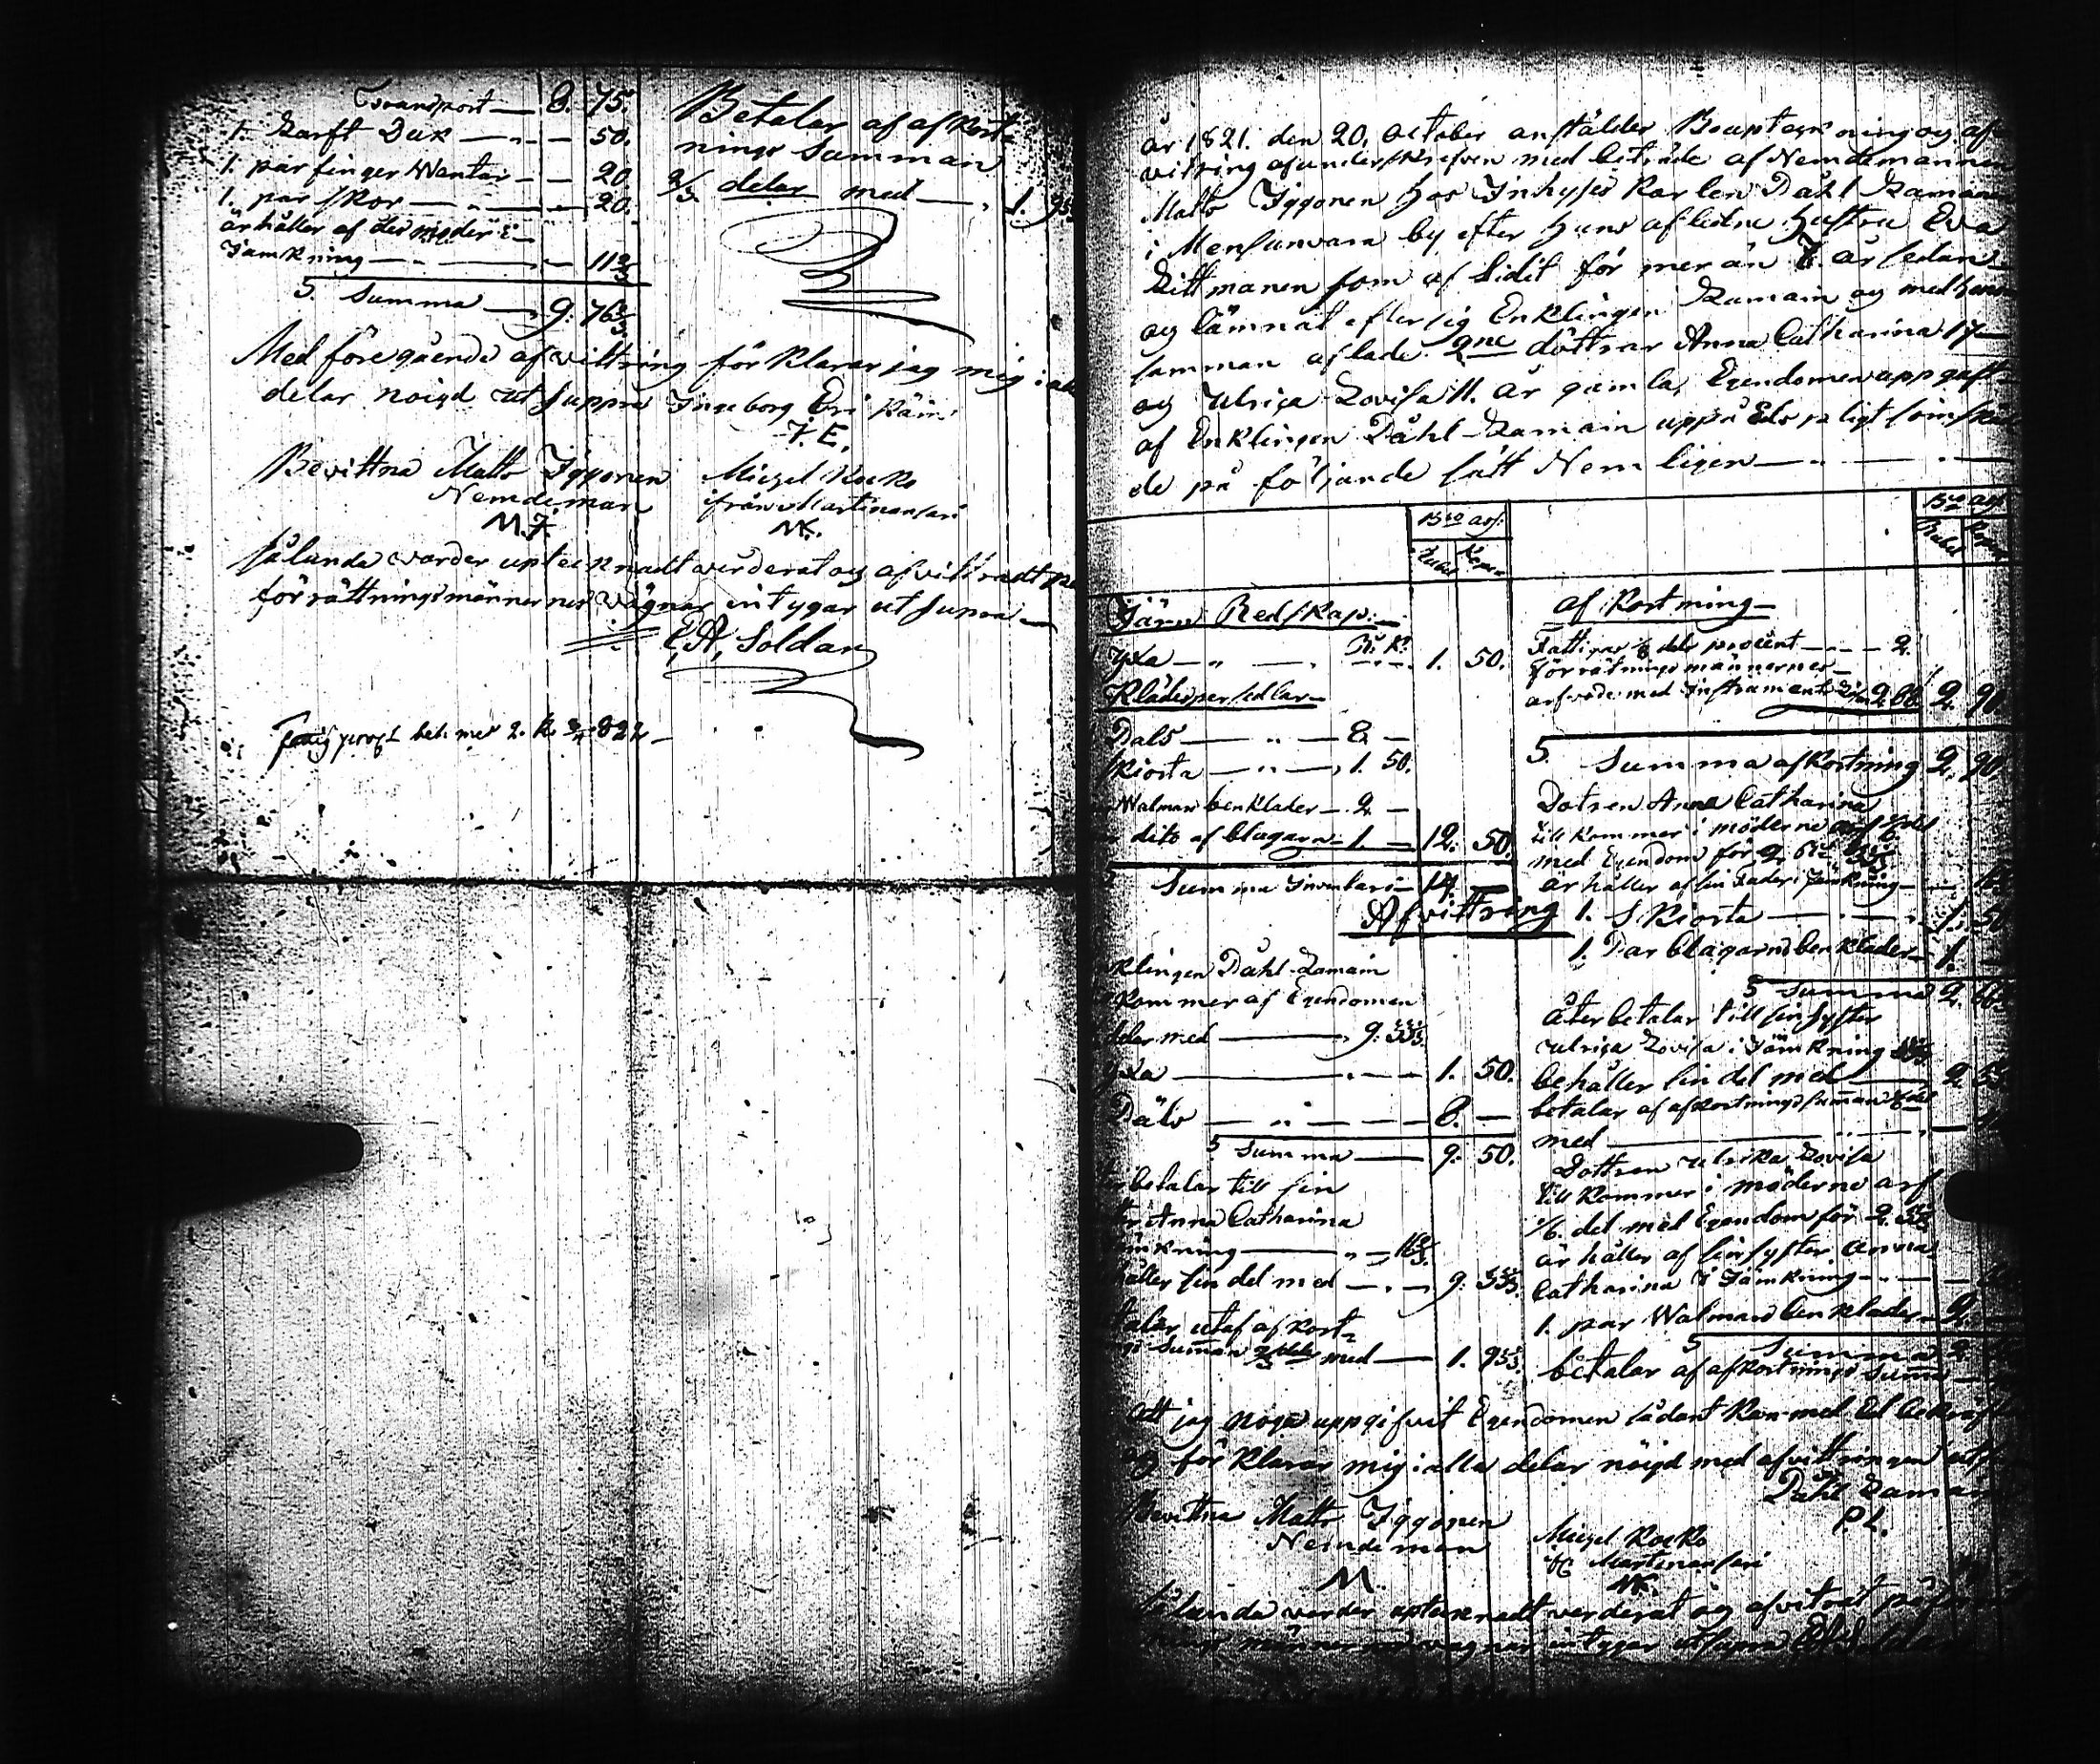 Transport — 8. 75.
1. Larft Duk — „ — 50.
1. par finger Wantar — — 20
1. par skor — „ — 20.
ärhåller af sin moder i
Jämkning — — 11 2/3
S. Summa — 9. 76 2/3
Betalar af afkort-
nings Summan
2/3 delar med — 1. 93
Med föregående afvittring förklarar jag mig i alla
delar nöigd ut supra Ingeborg
I. E.
Bevittna Matts Iggonen
Nemdeman
M. I.
Migel Kocko
från Martinansari
MK.
Sålunda vorder upteknadt värderat og afvittradt på
förrättningsmännernes vägnar intygar ut supra —
E, A, Soldan
bet. med 2. k. 822
År 1821. den 20. october anstäldes Boupteckning og af-
vitring af underskrefven med biträde af Nemdemannen
Matts Iggonen hos Inhyses Karlen Dåhl Lamain
i Mensunvara by efter hans aflidne hustru Eva
Kittmanen som aflidit för mer än 7. år sedan
og lämnat efter sig Enklingen Lamain og med honom
samman aflade 2ne döttrar Anna Catharina 17
og Ulrica Lovisa 11. år gamla, Egendomen uppgafs
af Enklingen Dåhl Lamain uppå Eds pligt som sked-
de på följande sätt Nemligen — „ —
Bco ass:
Rubel Kopek
Järn Redskap: —
Yxa — „ — 1. 50.
Klädespersedlar —
Päls — „ — 8 —
Skiorta — „ — 1. 50.
Walmars benkläder — 2 —
dito af blagarn — 1. — 12. 50
Summa Inventarii 14 —
Afvittring
klingen Dåhl Lamain
kommer af Egendomen
delar med — 9. 33⅓
yxa — „ — 1. 50.
Päls — „ — 8. —
S Summa — 9. 50.
betalar till sin
Anna Catharina
Jämkning — „ — 16⅔
håller sin del med — „ — 9. 33⅓
talar utaf afkort-
Suman 2/3 delar med — 1. 93⅓
Bco ass
Rubel Kopek
afkortning —
Fattigas 1/8 dels procent — 2.
Förrätningsmännernes
arfvode med Instrument 2. 88. 2. 90
S. Summa afkortning 2. 90.
Dotren Anna Catharina
tillkommer i möderne arf 1/6 del
med Egendom för 2. 33⅓
ärhåller af sin Fader i Jämkning —
1. Skiorta — „ — 1. 50
1. Par blagarns benkläder — 1. —
S Summa 2. 66⅔
Återbetalar till sin syster
Ulrica Lovisa i Jämkning 33⅓
behåller sin del med — 2. 33
betalar af afkortnings suman 1/6 del
med —
Dottren Ulrika Lovisa
tillkommer i möderne arf
1/6. del med Egendom för 2. 33⅓
ärhåller af sin syster Anna
Catharina i Jämkning — „ —
1. par Walmars benkläder — 2.
S Summa 2.
betalar af afkortnings Suma —
Att jag noga uppgifvit Egendomen sådant kan med Ed bekräfta
og förklarar mig i alla delar nöigd med afvittringen ut
Dåhl Lamain
P. L.
Bevittna Matts Iggonen
Nemdeman
M.
Migel Kocko
Martinansari
MK.
Sålunda vorder upteknadt verderat og afvitrat på
männernes vägnar intygar ut supra